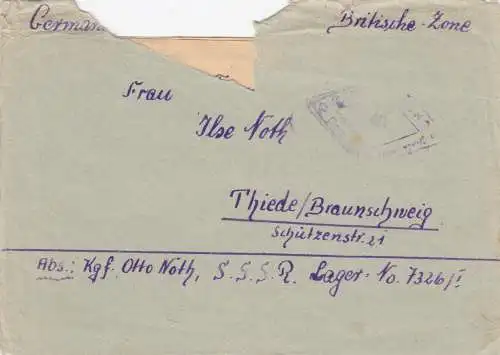 German Britische-Zone
Frau
Ilse Noth
Thiede/Braunschweig
Schützenstr. 21
Abs.: Kgf. Otto Noth, S.S.S.R. Lager-No. 7326/I